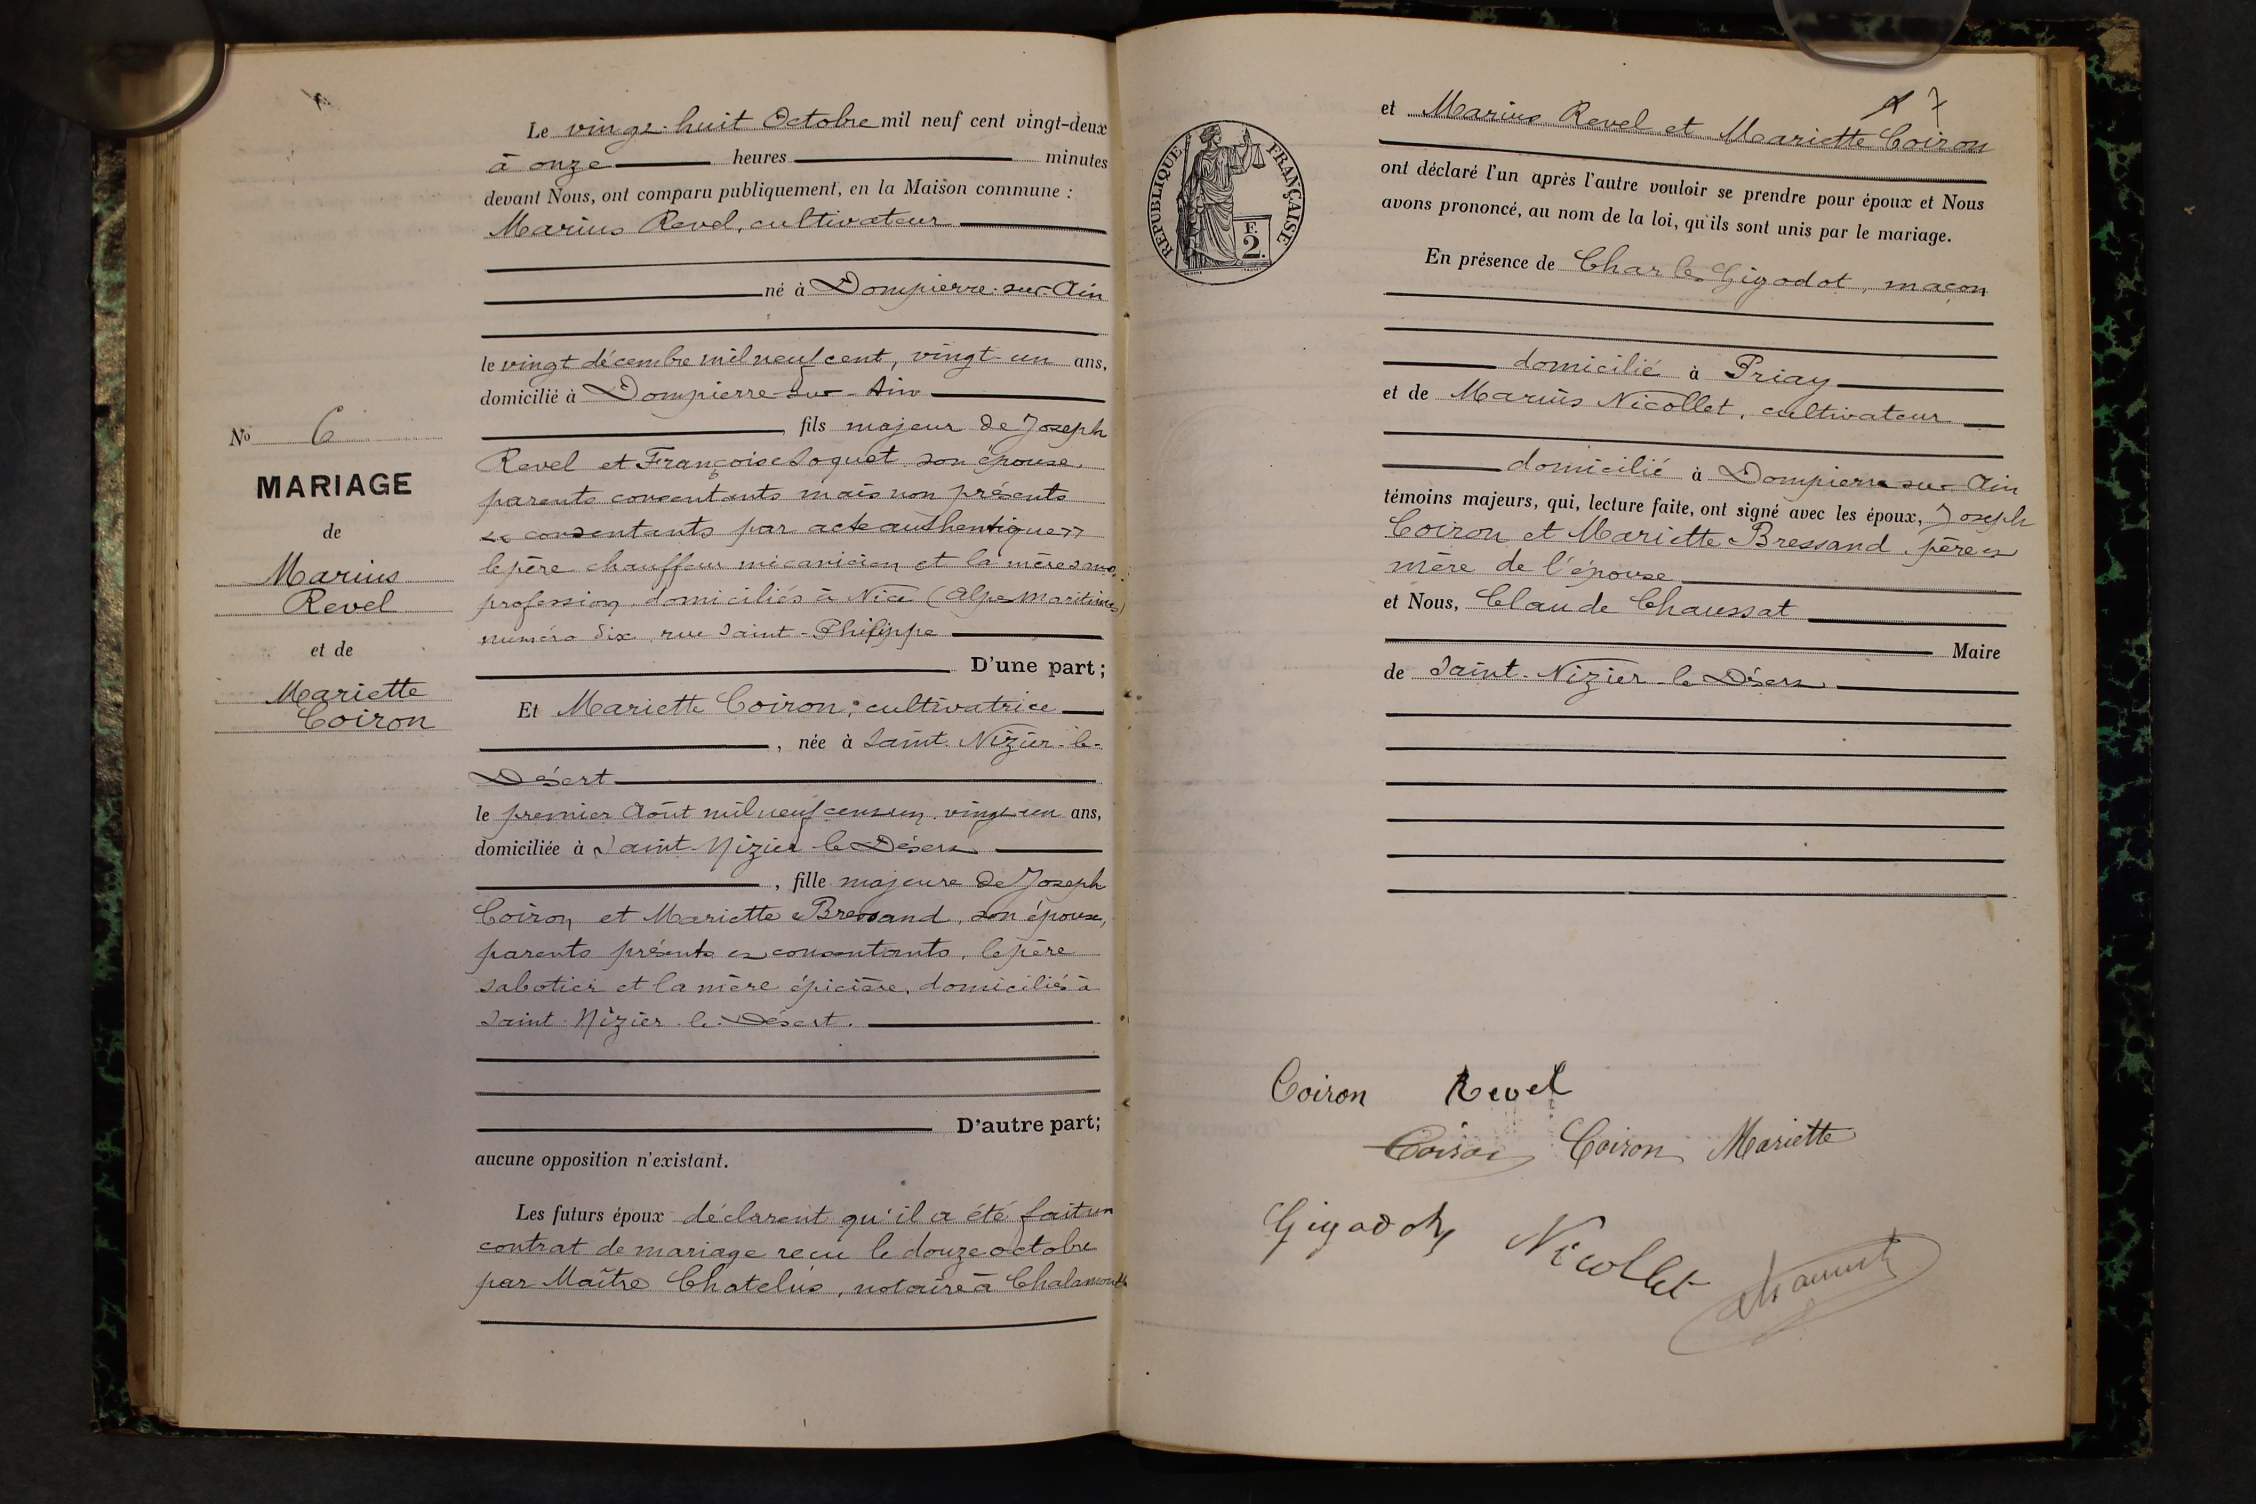 Le vingt-huit Octobre mil neuf cent vingt-deux
à onze heures minutes
devant Nous, ont comparu publiquement, en la Maison commune :
Marius Revel, cultivateur
né à Dompierre-sur-Ain
le vingt décembre mil neuf cent, vingt-un ans,
domicilié à Dompierre-sur-Ain
fils majeur de Joseph
Revel et Françoise Loquet son épouse,
parents consentants mais non présents
et consentants par acte authentique
le père chauffeur mécanicien et la mère sans
profession, domiciliés à Nice (Alpes Maritimes)
numéro dix rue Saint-Philippe
D'une part;
No 6
MARIAGE
de
Marius
Revel
et de
Mariette
Coiron
Et Mariette Coiron, cultivatrice
, née à Saint-Nizier-le-
Désert
le premier Août mil neuf cent un, vingt-un ans,
domiciliée à Saint-Nizier-le-Désert
, fille majeure de Joseph
Coiron et Mariette Bressand, son épouse,
parents présents et consentants, le père
sabotier et la mère épicière, domiciliés à
Saint-Nizier-le-Désert.
D'autre part;
aucune opposition n'existant.
Les futurs époux déclarent qu'il a été fait un
contrat de mariage reçu le douze octobre
par Maître Chatelus, notaire à Chalamont
7
et Marius Revel et Mariette Coiron
ont déclaré l'un après l'autre vouloir se prendre pour époux et Nous
avons prononcé, au nom de la loi, qu'ils sont unis par le mariage.
RÉPUBLIQUE FRANÇAISE
F.
2.
En présence de Charles Gigodot, maçon
domicilié à Priay
et de Marius Nicollet, cultivateur
domicilié à Dompierre-sur-Ain
témoins majeurs, qui, lecture faite, ont signé avec les époux, Joseph
Coiron et Mariette Bressand, père et
mère de l'épouse
et Nous, Claude Chaussat
Maire
de Saint-Nizier-le-Désert
Coiron Revel
Coiron Coiron Mariette
Gigodot Nicollet